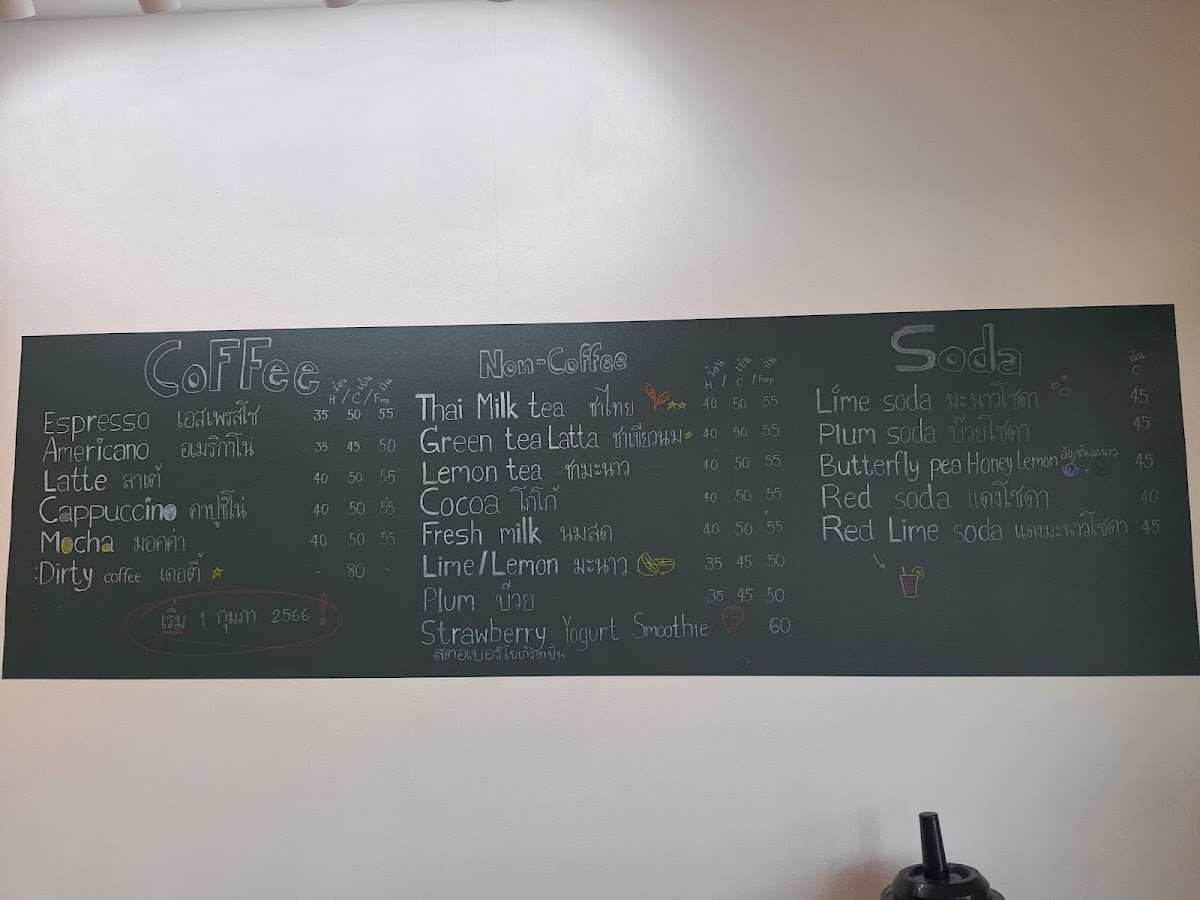 Coffee
ร้อน เย็น ปั่น
H / C / Frap
Espresso เอสเพรสโซ่ 35 50 55
Americano อเมริกาโน่ 35 45 50
Latte ลาเต้ 40 50 55
Cappuccino คาปูชิโน่ 40 50 55
Mocha มอคค่า 40 50 55
Dirty coffee เดอตี้ - 80 -
เริ่ม 1 กุมภา 2566 !
Non-Coffee
ร้อน เย็น ปั่น
H / C / Frap
Thai Milk tea ชาไทย 40 50 55
Green tea Latta ชาเขียวนม 40 50 55
Lemon tea ชามะนาว 40 50 55
Cocoa โกโก้ 40 50 55
Fresh milk นมสด 40 50 55
Lime/Lemon มะนาว 35 45 50
Plum บ๊วย 35 45 50
Strawberry Yogurt Smoothie 60
สตอเบอรี่โยเกิร์ตปั่น
Soda
เย็น
C
Lime soda มะนาวโซดา 45
Plum soda บ๊วยโซดา 45
Butterfly pea Honey lemon อัญชันมะนาว 45
Red soda แดงโซดา 40
Red Lime soda แดงมะนาวโซดา 45